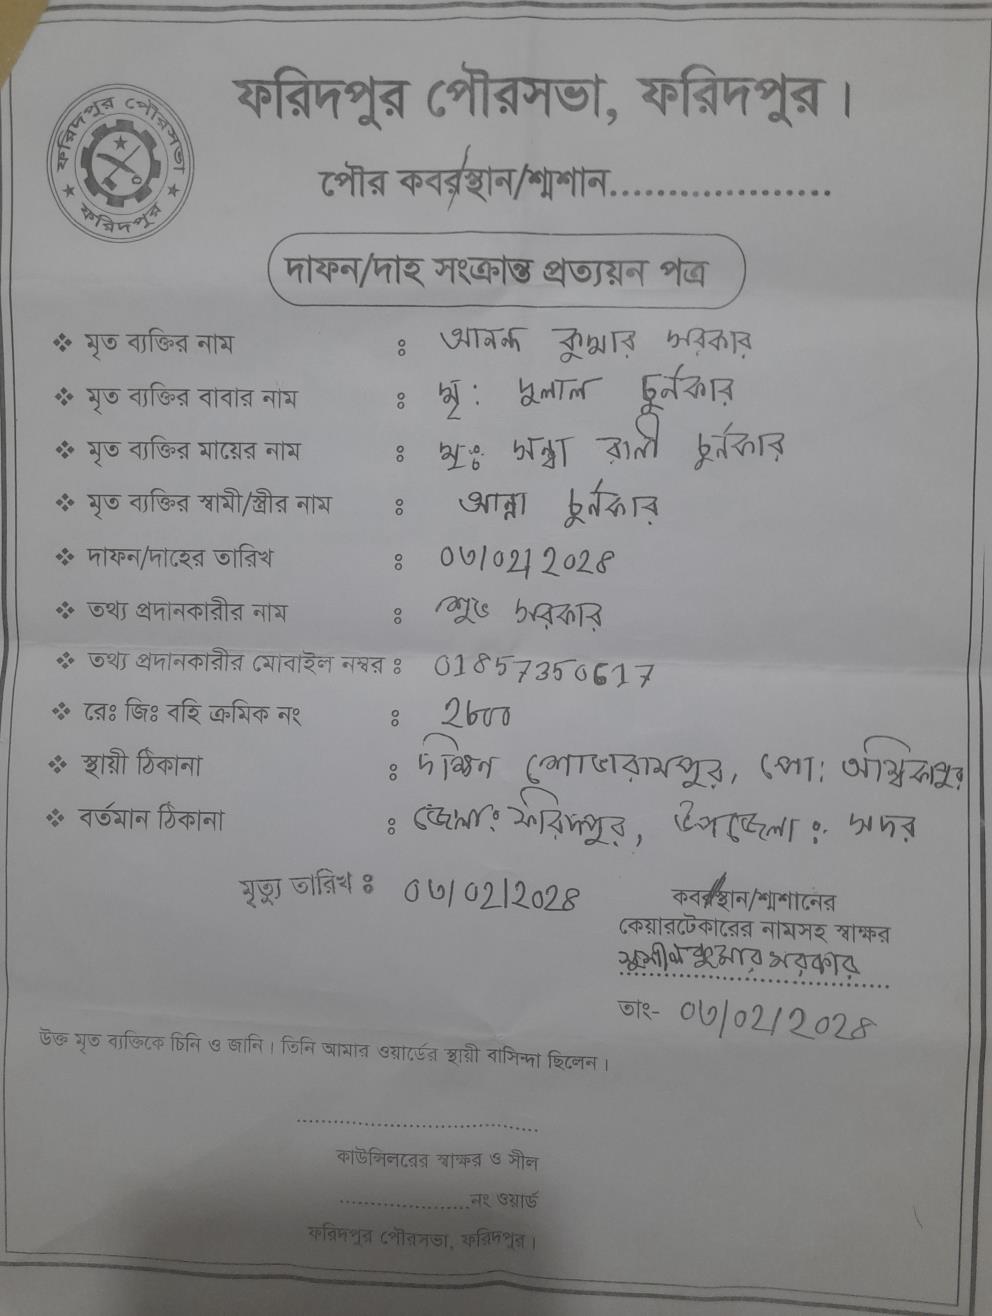 ফরিদপুর পৌরসভা
ফরিদপুর
ফরিদপুর পৌরসভা, ফরিদপুর।
পৌর কবরস্থান/শ্মশান....................
দাফন/দাহ সংক্রান্ত প্রত্যয়ন পত্র
❖ মৃত ব্যক্তির নাম : আনন্দ কুমার সরকার
❖ মৃত ব্যক্তির বাবার নাম : মৃ: দুলাল চুর্নকার
❖ মৃত ব্যক্তির মায়ের নাম : মৃঃ সন্ধ্যা রানী চুর্নকার
❖ মৃত ব্যক্তির স্বামী/স্ত্রীর নাম : আন্না চুর্নকার
❖ দাফন/দাহের তারিখ : ০৩/০২/২০২৪
❖ তথ্য প্রদানকারীর নাম : শুভ সরকার
❖ তথ্য প্রদানকারীর মোবাইল নম্বর : 01857350617
❖ রেঃ জিঃ বহি ক্রমিক নং : ২৬০০
❖ স্থায়ী ঠিকানা : দক্ষিন শোভারামপুর, পো: অম্বিকাপুর
❖ বর্তমান ঠিকানা : জেলা: ফরিদপুর, উপজেলা: সদর
মৃত্যু তারিখ : ০৩/০২/২০২৪
কবরস্থান/শ্মশানের
কেয়ারটেকারের নামসহ স্বাক্ষর
সুশীল কুমার সরকার
তাং- ০৩/০২/২০২৪
উক্ত মৃত ব্যক্তিকে চিনি ও জানি। তিনি আমার ওয়ার্ডের স্থায়ী বাসিন্দা ছিলেন।
কাউন্সিলরের স্বাক্ষর ও সীল
......................নং ওয়ার্ড
ফরিদপুর পৌরসভা, ফরিদপুর।